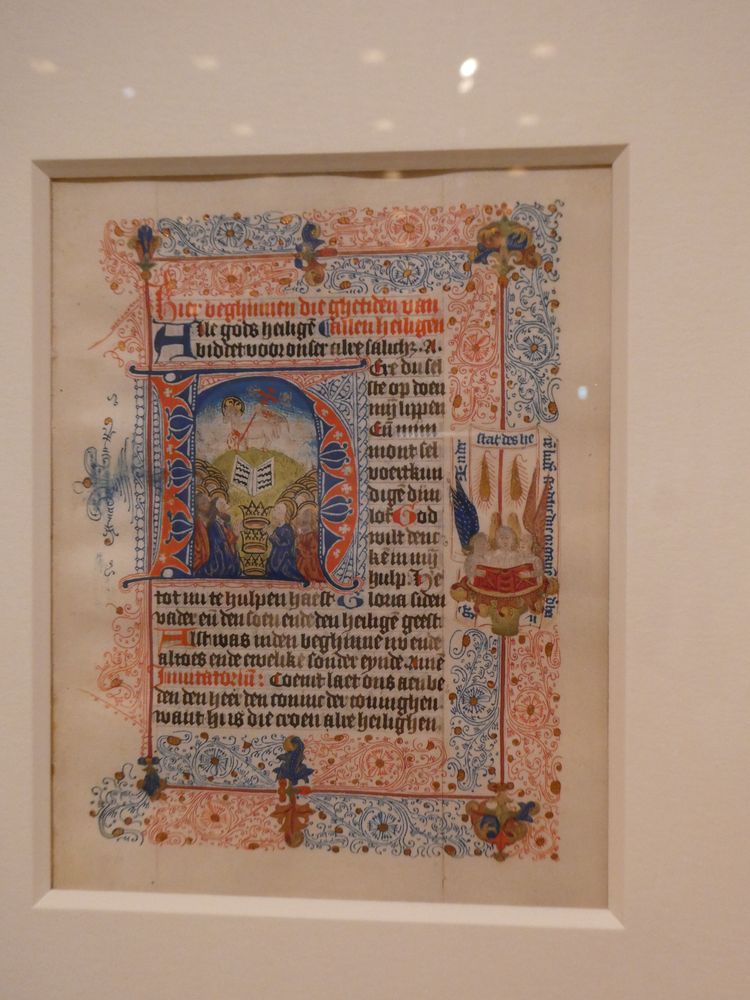 Hier beghinnen die ghetiden van
Alle gods heiligē Ɛ allen heiligen
biddet voor onser alre salich; . A.
Ere du sel
ste op doen
mij lippen
Eñ minn
mont sel
voert kun
digē dinē
lof God
wilt denc
kē in mij
hulp. He
tot mi te hulpen haest Gloria si den
vader eñ den soen ende den heiligē geest
Alst was inden beghinne nv ende
altoes ende ewelike sonder eynde Amē
Inuitatoriū: Coemt laet ons aenbe
den den heer den coninc der coninghen
want hi is die croen alre heilighen
stat des he